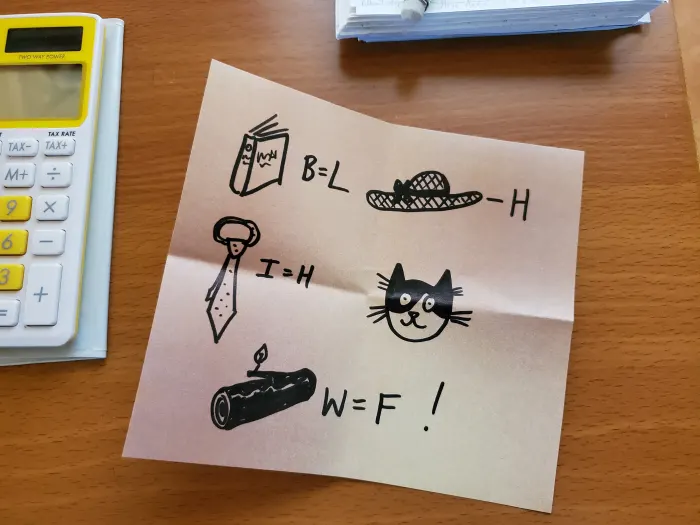 TWO WAY POWER
TAX RATE
TAX- TAX+
M+ ÷
9 ×
6 −
3 +
=
B=L -H
I=H
W=F !